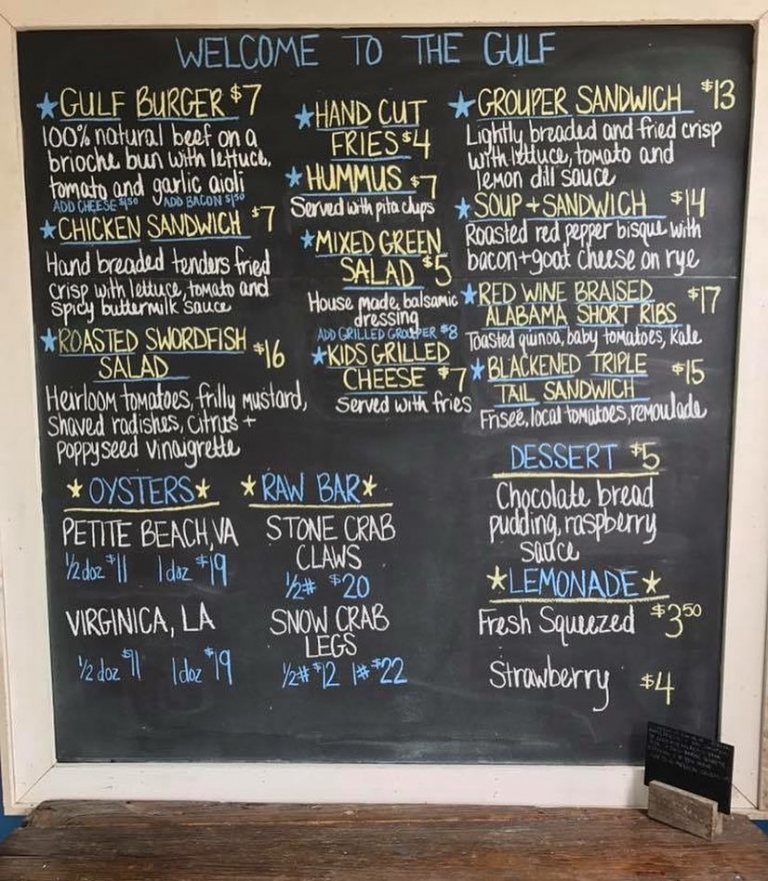 WELCOME TO THE GULF
GULF BURGER $7
100% natural beef on a
brioche bun with lettuce,
tomato and garlic aioli
ADD CHEESE $1.50 ADD BACON $1.50
CHICKEN SANDWICH $7
Hand breaded tenders fried
crisp with lettuce, tomato and
spicy buttermilk sauce
ROASTED SWORDFISH
SALAD $16
Heirloom tomatoes, frilly mustard,
Shaved radishes, citrus +
poppyseed vinaigrette
HAND CUT
FRIES $4
HUMMUS $7
Served with pita chips
MIXED GREEN
SALAD $5
House made, balsamic
dressing
ADD GRILLED GROUPER $8
KIDS GRILLED
CHEESE $7
Served with fries
GROUPER SANDWICH $13
Lightly breaded and fried crisp
with lettuce, tomato and
lemon dill sauce
SOUP + SANDWICH $14
Roasted red pepper bisque with
bacon + goat cheese on rye
RED WINE BRAISED
ALABAMA SHORT RIBS $17
Toasted quinoa, baby tomatoes, kale
BLACKENED TRIPLE
TAIL SANDWICH $15
Friseé, local tomatoes, remoulade
OYSTERS
PETITE BEACH, VA
1/2 doz $11 1 doz $19
VIRGINICA, LA
1/2 doz $11 1 doz $19
RAW BAR
STONE CRAB
CLAWS
1/2# $20
SNOW CRAB
LEGS
1/2# $12 1# $22
DESSERT $5
Chocolate bread
pudding, raspberry
sauce
LEMONADE
Fresh Squeezed $3.50
Strawberry $4